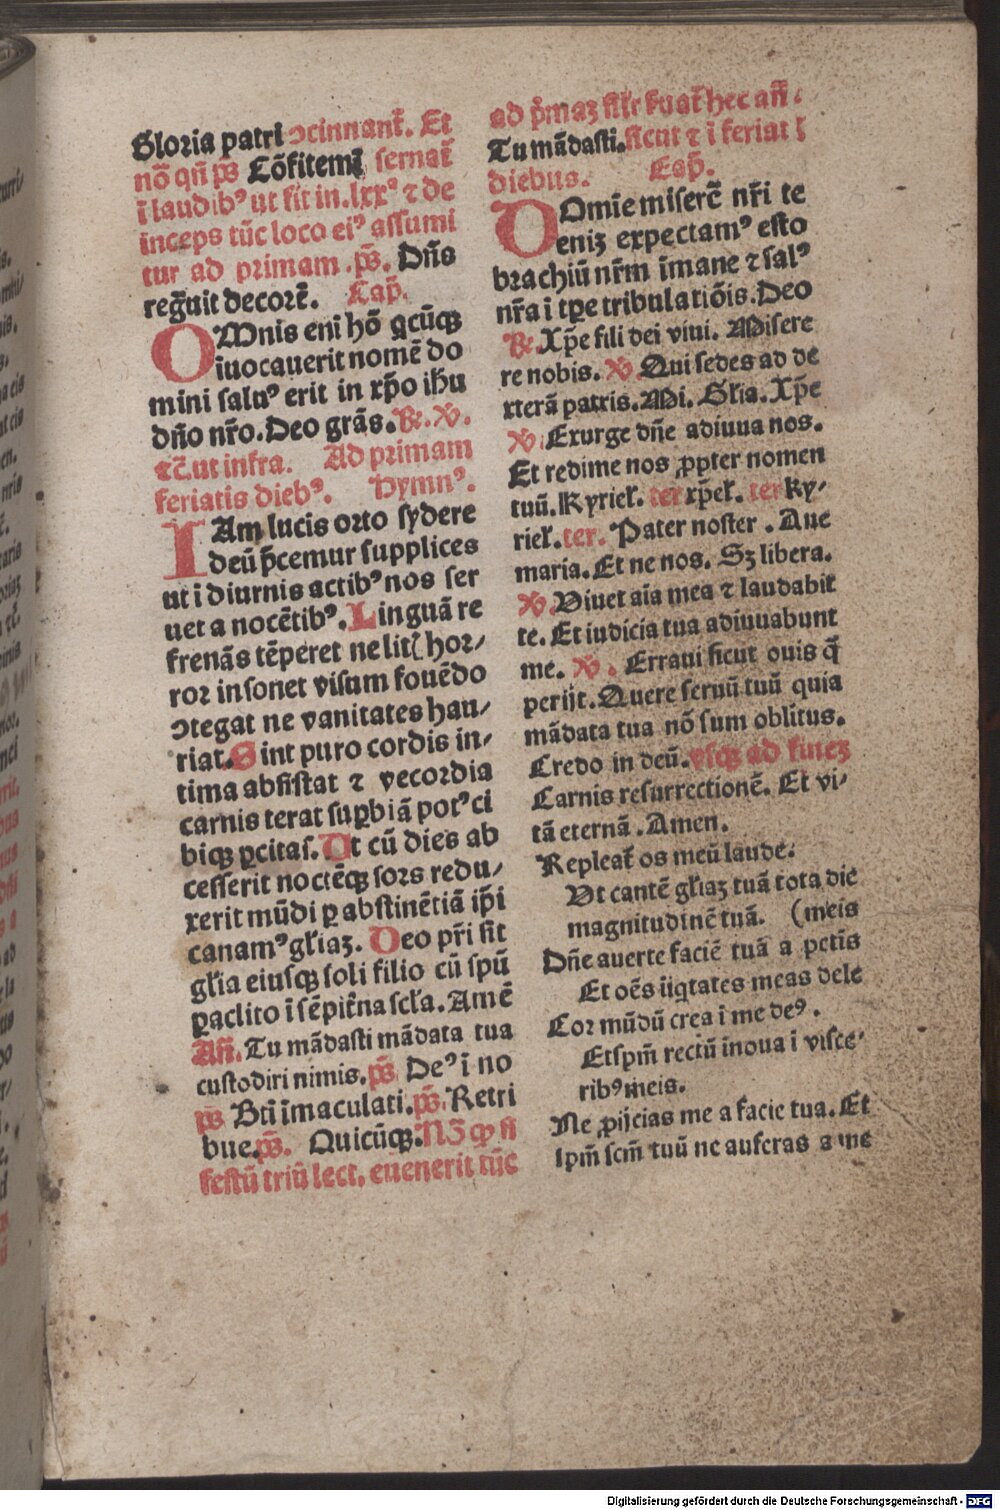 Gloria patri ɔcinnant᷑. Et
nō qn̄ p̄s Cōfitemĩ sernat᷑
ī laudibꝰ ut sit in.lxxᵃ ⁊ de
inceps tūc loco eiꝰ assumi
tur ad primam .p̄s. Dn̄s
regͣuit decorē. Cap̄.
OMnis eni hō q̄cūqꝫ
iuocauerit nomē do
mini saluꝰ erit in xp̄o ih̄u
dn̄o nr̄o.Deo grās.℟.℣.
⁊c̄.ut infra. Ad primam
feriatis diebꝰ. Hymnꝰ.
IAm lucis orto sydere
deū p̄cemur supplices
ut i diurnis actibꝰ nos ser
uet a nocētibꝰ.Linguā re
frenās tēperet ne litꝭ hor⸗
ror insonet visum fouēdo
ɔtegat ne vanitates hau⸗
riat.Sint puro cordis in⸗
tima absistat ⁊ vecordia
carnis terat suꝑbiā potꝰ ci
biqꝫ ꝑcitas.Vt cū dies ab
cesserit noctēqꝫ sors redu⸗
xerit mūdi ꝑ abstinētiā ip̄i
canamꝰ gl̄iaꝫ. Deo pr̄i sit
gl̄ia eiusqꝫ soli filio cū spū
ꝑaclito ī sēpit᷑na scl̄a.Amē
An̄.Tu mādasti mādata tua
custodiri nimis.p̄s Deꝰ ī no
p̄s Bti īmaculati.p̄s.Retri
bue.p̄s. Quicūqꝫ.Nꝫ ꝙ si
festū triū lect, euenerit tūc
ad p̄maꝫ hec an̄.
Tu mādasti.sicut ⁊ i feriatꝭ
diebus. Cap̄.
DOmīe miserē nr̄i te
eniꝫ expectamꝰ esto
brachiū nr̄m īmane ⁊ salꝰ
nr̄a i tꝑe tribulatiōis.Deo
℟.Xp̄e fili dei viui. Misere
re nobis.℣.Qui sedes ad de
xterā patris.Mi. Gl̄ia.Xp̄e
℣.Exurge dn̄e adiuua nos.
Et redime nos ꝓpter nomen
tuū.Kyriel̄.ter xp̄el̄.ter ky⸗
riel̄.ter. Pater noster .Aue
maria.Et ne nos. Sꝫ libera.
℣.Viuet aīa mea ⁊ laudabit
te.Et iudicia tua adiuuabunt
me. ℣. Erraui sicut ouis q̄
perijt.Quere seruū tuū quia
mādata tua nō sum oblitus.
Credo in deū.vsqꝫ ad fineꝫ
Carnis resurrectionē. Et vi⸗
tā eternā .Amen.
Repleat᷑ os meū laude.
Vt cantē gl̄iaꝫ tuā tota die
magnitudinē tuā. (meis
Dn̄e auerte faciē tuā a petīs
Et oēs iiqtates meas dele
Cor mūdū crea i me deꝰ.
Et sp̄m rectū inoua i visce⸗
ribꝰ meis.
Ne ꝓijcias me a facie tua.Et
sp̄m scm̄ tuū ne auferas a me
Digitalisierung gefördert durch die Deutsche Forschungsgemeinschaft - DFG